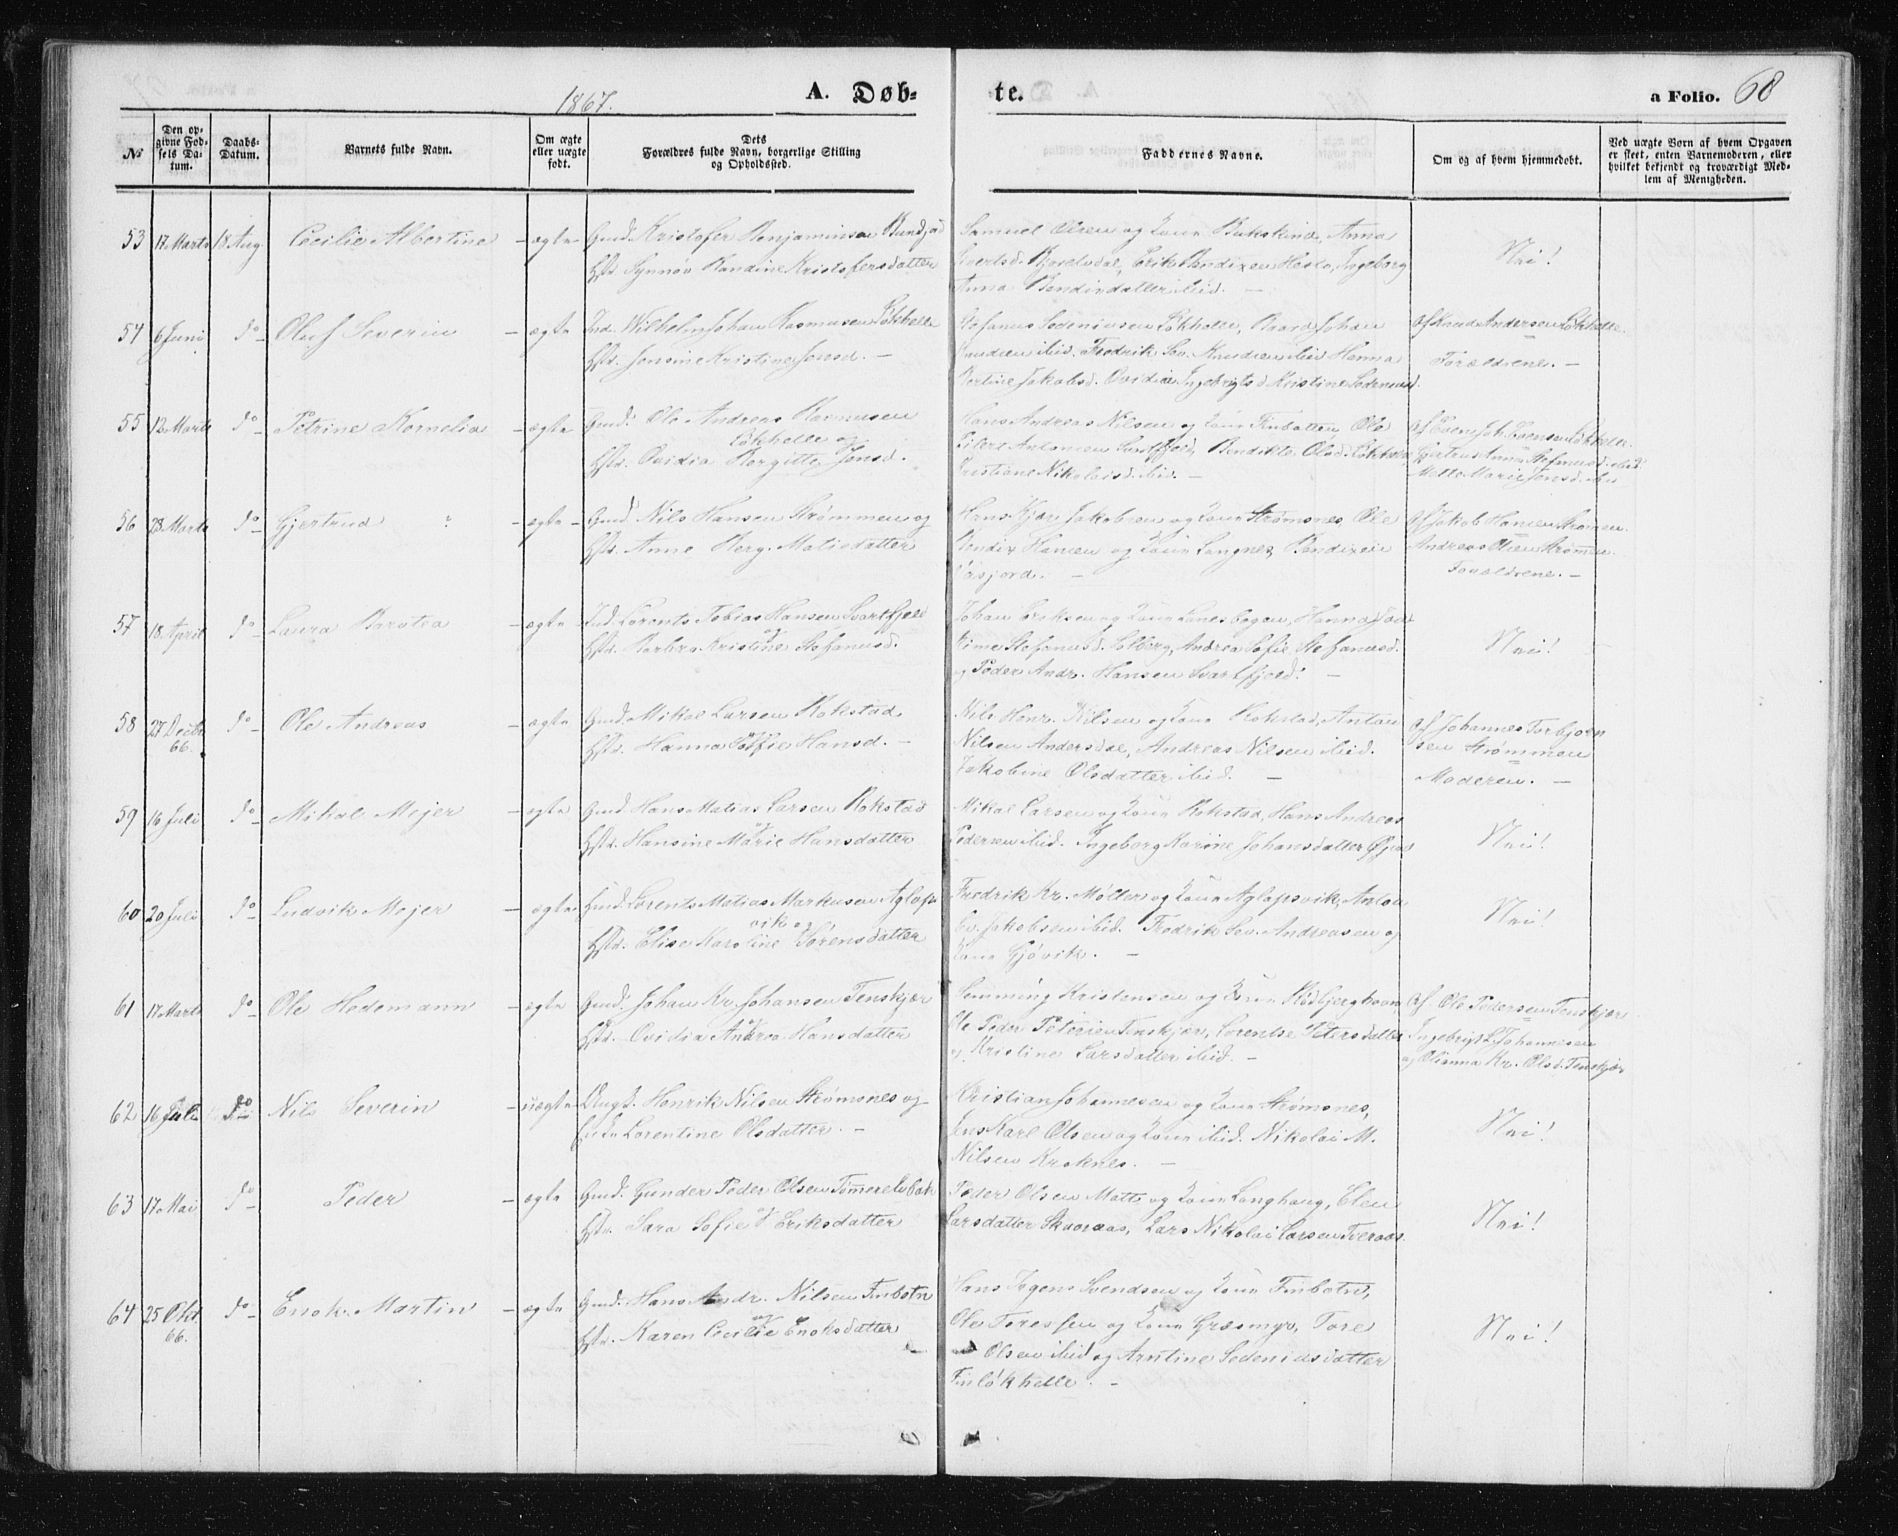 1867.
A. Døb-
te.
a Folio. 68
№
Den opgivne Fødsels Datum.
Daabs-Datum.
Barnets fulde Navn.
Om ægte eller uægte født.
Dets Forældres fulde Navn, borgerlige Stilling og Opholdssted.
Faddernes Navne.
Om og af hvem hjemmedøbt.
Ved uægte Børn af hvem Opgaven er skeet, enten Barnemoderen, eller hvilket bekjendt og troværdigt Medlem af Menigheden.
53 17 Marts 18 Aug. Cecilie Albertine - ægte Gmd. Kristofer Benjaminsen
Hst. Synnøv Kristofersdatter
Samuel Olsen og Kone Anna
Erik Bendixen Ingeborg
Anna Bendixdatter ibid. -
Nei!
54 6 Juni do Oluf Severin - ægte Ind. Wilhelm Johan Rasmusen Løkhelle
Hst. Jensine Kristine Jensd. -
Stefanus Sedeniusen Løkhelle, Baard Johan
Knudsen ibid. Fredrik Sev. Knudsen ibid Hanna
Bertine Jakobsd. Ovidia Ingebrigtsd Kristine Sedeniusd.
Af Knud Andersen Løkhelle.
Forældrene. -
55 12 Marts do Petrine Kornelia - ægte Gmd. Ole Andreas Rasmusen
Løkhelle og
Hst. Ovidia Borgitte Jensd.
Hans Andreas Nilsen og Kone Finbotten, Ole
Eilert Antonsen Svartfjeld, Bendikte Olsd. Løkhelle,
Kristiane Nikolaisd. ibid. -
Gjertrud Anna Stefanusd. ibid
Mette Marie Jensd. ibid
56 28 Marts do Gjertrud - ægte - Gmd. Nils Hansen Strømmen og
Hst. Anne Berg. Matisdatter
Hans Kjær Jakobsen og Kone Strømsnes, Ole
Bendix Hansen og Kone Langnes, Bendixen
Af Jakob Hansen Strømen.
Andreas Olsen Strømmen.
Forældrene. -
57 18 April do Laura Barotea - ægte Ind. Lorents Tobias Hansen Svartfjeld
og
Hst. Barbra Kristine Stefanusd.
Johan Eriksen og Kone Lanesbogen, Hanna Joa
kime Stefanusd. Solberg, Andrea Sofie Stefanusd.
og Peder Andr. Hansen Svartfjeld. -
Nei!
58 27 Decbr.
66. do Ole Andreas - ægte Gmd. Mikal Larsen Rokstad
og
Hst. Hanna Sofie Hansd. -
Nils Henr. Nilsen og Kone Rokstad, Anton
Nilsen Andersdal, Andreas Nilsen ibid.
Jakobine Olsdatter ibid. -
Af Johannes Torbjørn
sen Strømmen
Moderen. -
59 16 Juli do Mikal Mejer - ægte Gmd. Hans Matias Larsen Rokstad
og
Hst. Hansine Marie Hansdatter
Mikal Larsen og Kone Rokstad, Hans Andreas
Pedersen ibid. Ingeborg Karine Johansdatter
Nei!
60 20 Juli do Ludvik Mejer - ægte Gmd. Lorents Matias Markusen Aglaps
vik og
Hst. Elise Karoline Sørensdatter
Fredrik Kr. Møller og Kone Aglapsvik, Anton
Ev. Jakobsen ibid. Fredrik Sev. Andreasen og
Kone Gjøvik. -
Nei!
61 17 Marts do Ole Hedemann - ægte Gmd. Johan Kr. Johansen Tenskjær
og
Hst. Ovidia Andrea Hansdatter
Hemming Kristensen og Kone
Ole Peder Petersen Tenskjær, Lorentse Petersdatter
og Kristine Larsdatter ibid. -
Af Ole Pedersen Tenskjær
Ingebrigt Johannesen
og Olianna Kr. Olsd. Tenskjær
62 16 Juli do Nils Severin - uægte Ungk. Henrik Nilsen Strømsnes og
Enke Lorentine Olsdatter. -
Kristian Johannesen og Kone Strømsnes,
Jens Karl Olsen og Kone ibid. Nikolai M.
Nilsen Kraknes. -
Nei!
63 17 Mai do Peder - ægte Gmd. Gunder Peder Olsen Tømmerelvbak
og
Hst. Sara Sofie Eriksdatter
Peder Olsen Matt og Kone Langhaug, Elen
Larsdatter Skaaraas, Lars Nikolai Larsen Tveraas.
Nei!
64 25 Okt.
66. do Enok Martin - ægte Gmd. Hans Andr. Nilsen Finbotn
og
Hst. Karen Cecilie Enoksdatter
Hans Jørgen Svendsen og Kone Finbotn,
Ole Toresen og Kone Græsmyr, Tore
Olsen ibid og Arntine Sedeniusdatter
Finløkhelle. -
Nei!